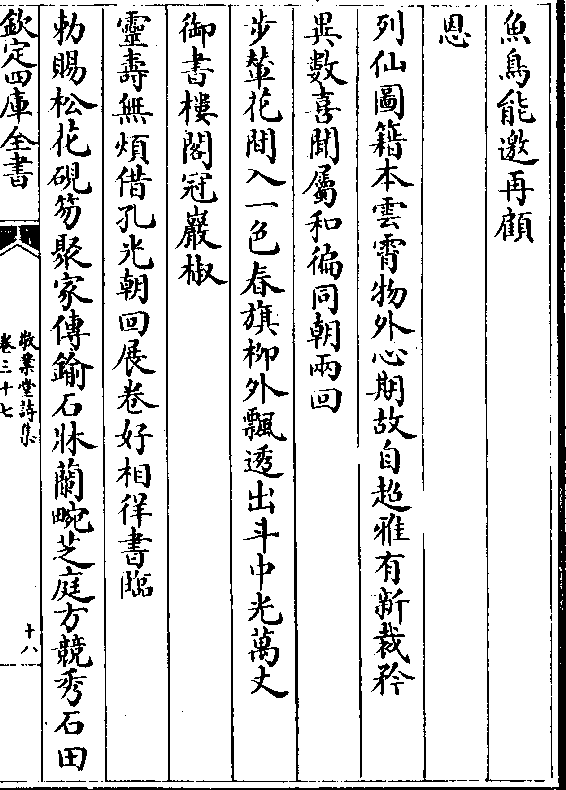 魚鳥能邀再顧
恩
列仙圖籍本雲霄物外心期故自超雅有新裁矜
異數喜聞屬和徧同朝兩回
步輦花間入一色春旗柳外飄透出斗中光萬丈
御書樓閣冠巖椒
靈壽無煩借孔光朝回展卷好相徉書臨
勅賜松花硯笏聚家傳鍮石牀蘭畹芝庭方競秀石田
欽定四庫全書
敬業堂詩集
卷三十七
十八